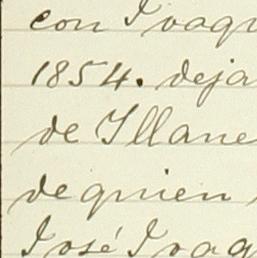 con Ivaq
1854. deja
de Illane
de quien
José Ivaq